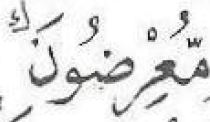 مُّعْرِضُونَ ك